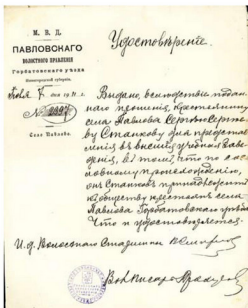 М. В. Д.
ПАВЛОВСКАГО
ВОЛОСТНОГО ПРАВЛЕНІЯ
Горбатовскаго уѣзда
Нижегородской губерніи.
Село Павлово.
Удостовѣреніе.
Выдано, вслѣдствіе подан-
наго прошенія, крестьянину
села Павлова Сергѣю Сергѣе-
ву Станкову для представ-
ленія въ высшія учебныя заве-
денія, въ томъ, что по сос-
ловному происхожденію,
онъ Станковъ принадлежитъ
къ обществу крестьянъ села
Павлова Горбатовскаго уѣзда
Что и удостовѣряется.
И. д. Волостного Старшины
Вол. Писарь